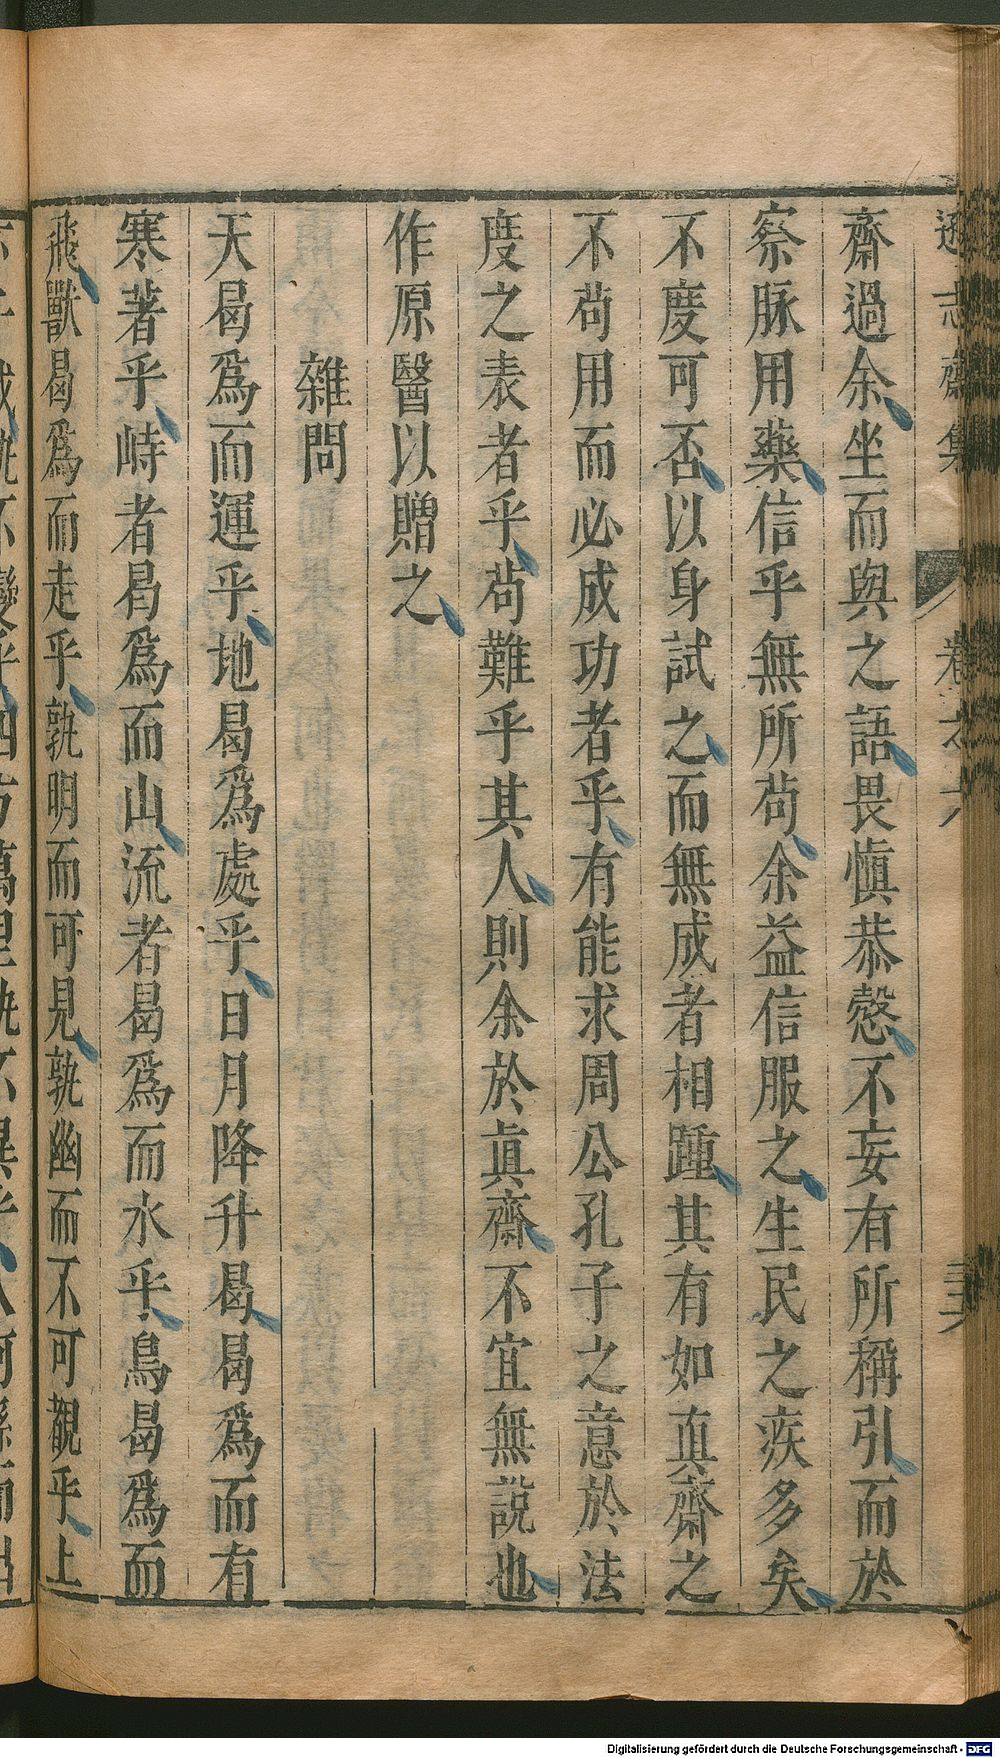 遜志齋集 卷之六
齋過余坐而與之語畏慎恭慤不妄有所稱引而於
察脉用藥信乎無所苟余益信服之生民之疾多矣
不度可否以身試之而無成者相踵其有如真齋之
不苟用而必成功者乎有能求周公孔子之意於法
度之表者乎苟難乎其人則余於眞齋不宜無說也
作原醫以贈之
雜問
天曷爲而運乎地曷爲處乎日月降升曷曷爲而有
寒著乎峙者曷爲而山流者曷爲而水乎鳥曷爲而
飛獸曷爲而走乎孰明而可見孰幽而不可觀乎上
Digitalisierung gefördert durch die Deutsche Forschungsgemeinschaft - DFG